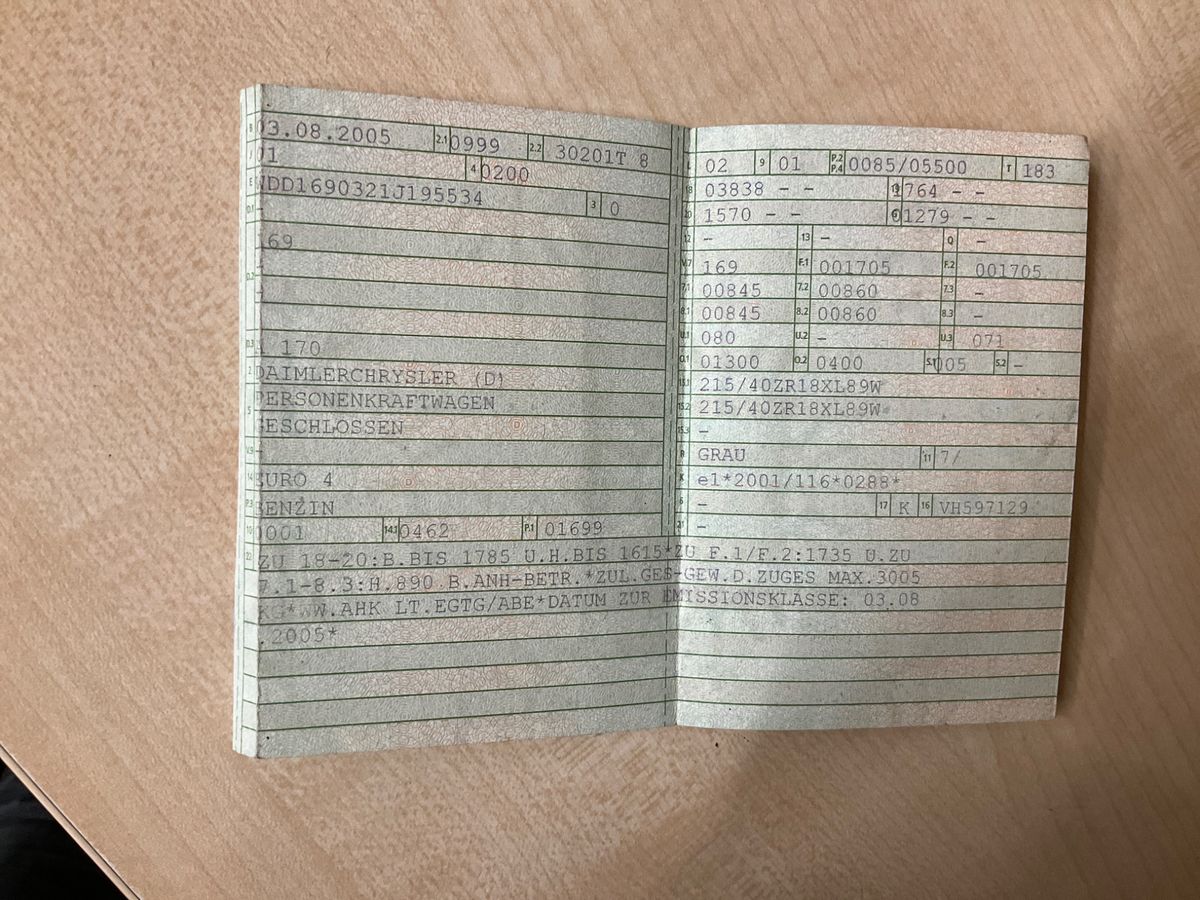 B 03.08.2005 2.1 0999 2.2 30201T 8
J 01 4 0200
E WDD1690321J195534 3 0
D.1
169
D.2
D.3 A 170
2 DAIMLERCHRYSLER (D)
5 PERSONENKRAFTWAGEN
GESCHLOSSEN
V.9 –
14 EURO 4
P.3 BENZIN
10 0001 14.1 0462 P.1 01699
L 02 9 01 P.2 P.4 0085/05500 T 183
18 03838 – – 19 1764 – –
20 1570 – – G 01279 – –
12 – 13 – Q –
V.7 169 F.1 001705 F.2 001705
7.1 00845 7.2 00860 7.3 –
8.1 00845 8.2 00860 8.3 –
U.1 080 U.2 – U.3 071
O.1 01300 O.2 0400 S.1 005 S.2 –
15.1 215/40ZR18XL89W
15.2 215/40ZR18XL89W
15.3 –
R GRAU 11 7/
K e1*2001/116*0288*
6 – 17 K 16 VH597129
21 –
22 ZU 18-20:B.BIS 1785 U.H.BIS 1615*ZU F.1/F.2:1735 U.ZU
7.1-8.3:H.890 B.ANH-BETR.*ZUL.GES-GEW.D.ZUGES MAX.3005
KG*WW.AHK LT.EGTG/ABE*DATUM ZUR EMISSIONSKLASSE: 03.08
.2005*